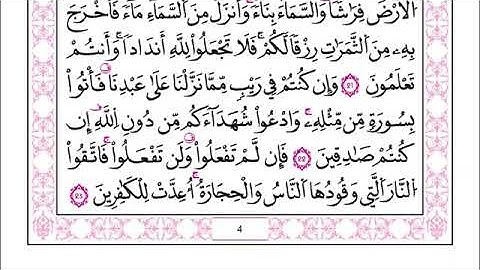 الَارْضَ فِرَٰشاً وَالسَّمَآءَ بِنَآءً وَأَنزَلَ مِنَ السَّمَآءِ مَآءً فَأَخْرَجَ
بِهِۦ مِنَ الثَّمَرَٰتِ رِزْقاً لَّكُمْ فَلَا تَجْعَلُوا۟ لِلهِ أَندَاداً وَأَنتُمْ
تَعْلَمُونَ 21 وَإِن كُنتُمْ فِي رَيْبٍ مِّمَّا نَزَّلْنَا عَلَىٰ عَبْدِنَا فَأْتُوا۟
بِسُورَةٍ مِّن مِّثْلِهِۦ وَادْعُوا۟ شُهَدَآءَكُم مِّن دُونِ اللهِ إِن
كُنتُمْ صَٰدِقِينَ 22 فَإِن لَّمْ تَفْعَلُوا۟ وَلَن تَفْعَلُوا۟ فَاتَّقُوا۟
النَّارَ الَّتِي وَقُودُهَا النَّاسُ وَالْحِجَارَةُ أُعِدَّتْ لِلْكَٰفِرِينَ 23
4